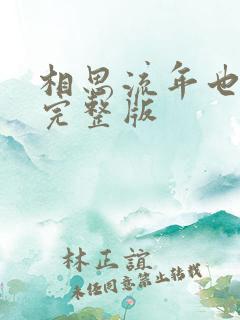 相思流年也
完整版
林正誼
未经同意禁止转载